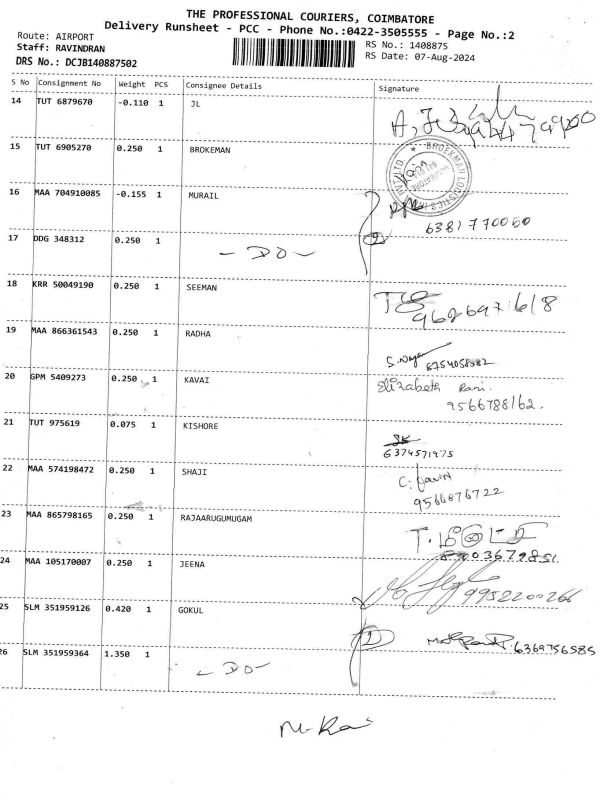 THE PROFESSIONAL COURIERS, COIMBATORE
Delivery Runsheet - PCC - Phone No.:0422-3505555 - Page No.:2
Route: AIRPORT
Staff: RAVINDRAN
DRS No.: DCJB140887502
RS No.: 1408875
RS Date: 07-Aug-2024
S No Consignment No Weight PCS Consignee Details Signature
14 TUT 6879670 -0.110 1 JL
15 TUT 6905270 0.250 1 BROKEMAN
BROEKMAN LOGISTICS
16 MAA 704910085 -0.155 1 MURAIL
6381770000
17 DDG 348312 0.250 1 - DO -
18 KRR 50049190 0.250 1 SEEMAN
9626971618
19 MAA 866361543 0.250 1 RADHA
8754058382
20 GPM 5409273 0.250 1 KAVAI Elizabeth Rani.
9566788162.
21 TUT 975619 0.075 1 KISHORE
6374571975
22 MAA 574198472 0.250 1 SHAJI
9566876722
23 MAA 865798165 0.250 1 RAJAARUGUMUGAM
24 MAA 105170007 0.250 1 JEENA
9952200266
25 SLM 351959126 0.420 1 GOKUL
6369756585
26 SLM 351959364 1.350 1 - DO -